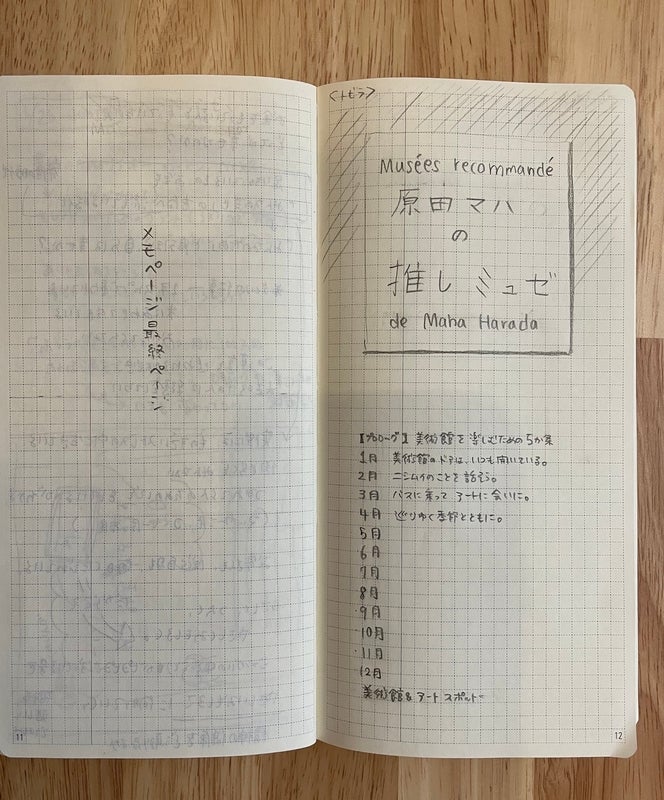 メモページ最終ページ
11
<トビラ>
Musées recommandé
原田マハ
の
推しミュゼ
de Maha Harada
【プロローグ】美術館を楽しむための5か条
1月 美術館のドアは、いつも開いている。
2月 ニシムイのことを話そう。
3月 バスに乗ってアートに会いに。
4月 巡りゆく季節とともに。
5月
6月
7月
8月
9月
10月
11月
12月
美術館&アートスポット
12